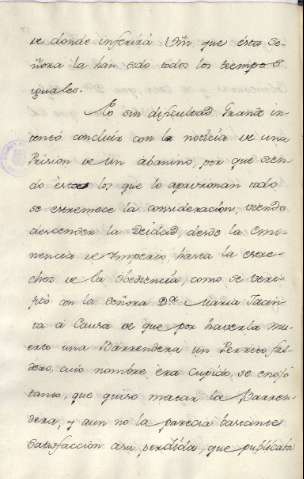 de donde inferirá Vm que esta Se-
ñora la han sido todos los tiempos
iguales.
No sin dificultad Grande in
tento concluir con la noticia de una
Prision de un abanino, por que sien
do estos los que lo aprisionan todo
se estremece la consideracion, viendo
descender la Deidad, desde la emi
nencia de Imperio, hasta la estre
chez de la obediencia, como se veri
ficó con la Señora Da Maria Jacin
ta á causa de que por haverla mu
erto una Barrendera un Perrito fal
dero, cuio nombre era Cupido, se enojó
tanto, que quiso matar la Barren
dera, y aun no la parecia bastante
Satisfaccion a su perdida, que publicaba